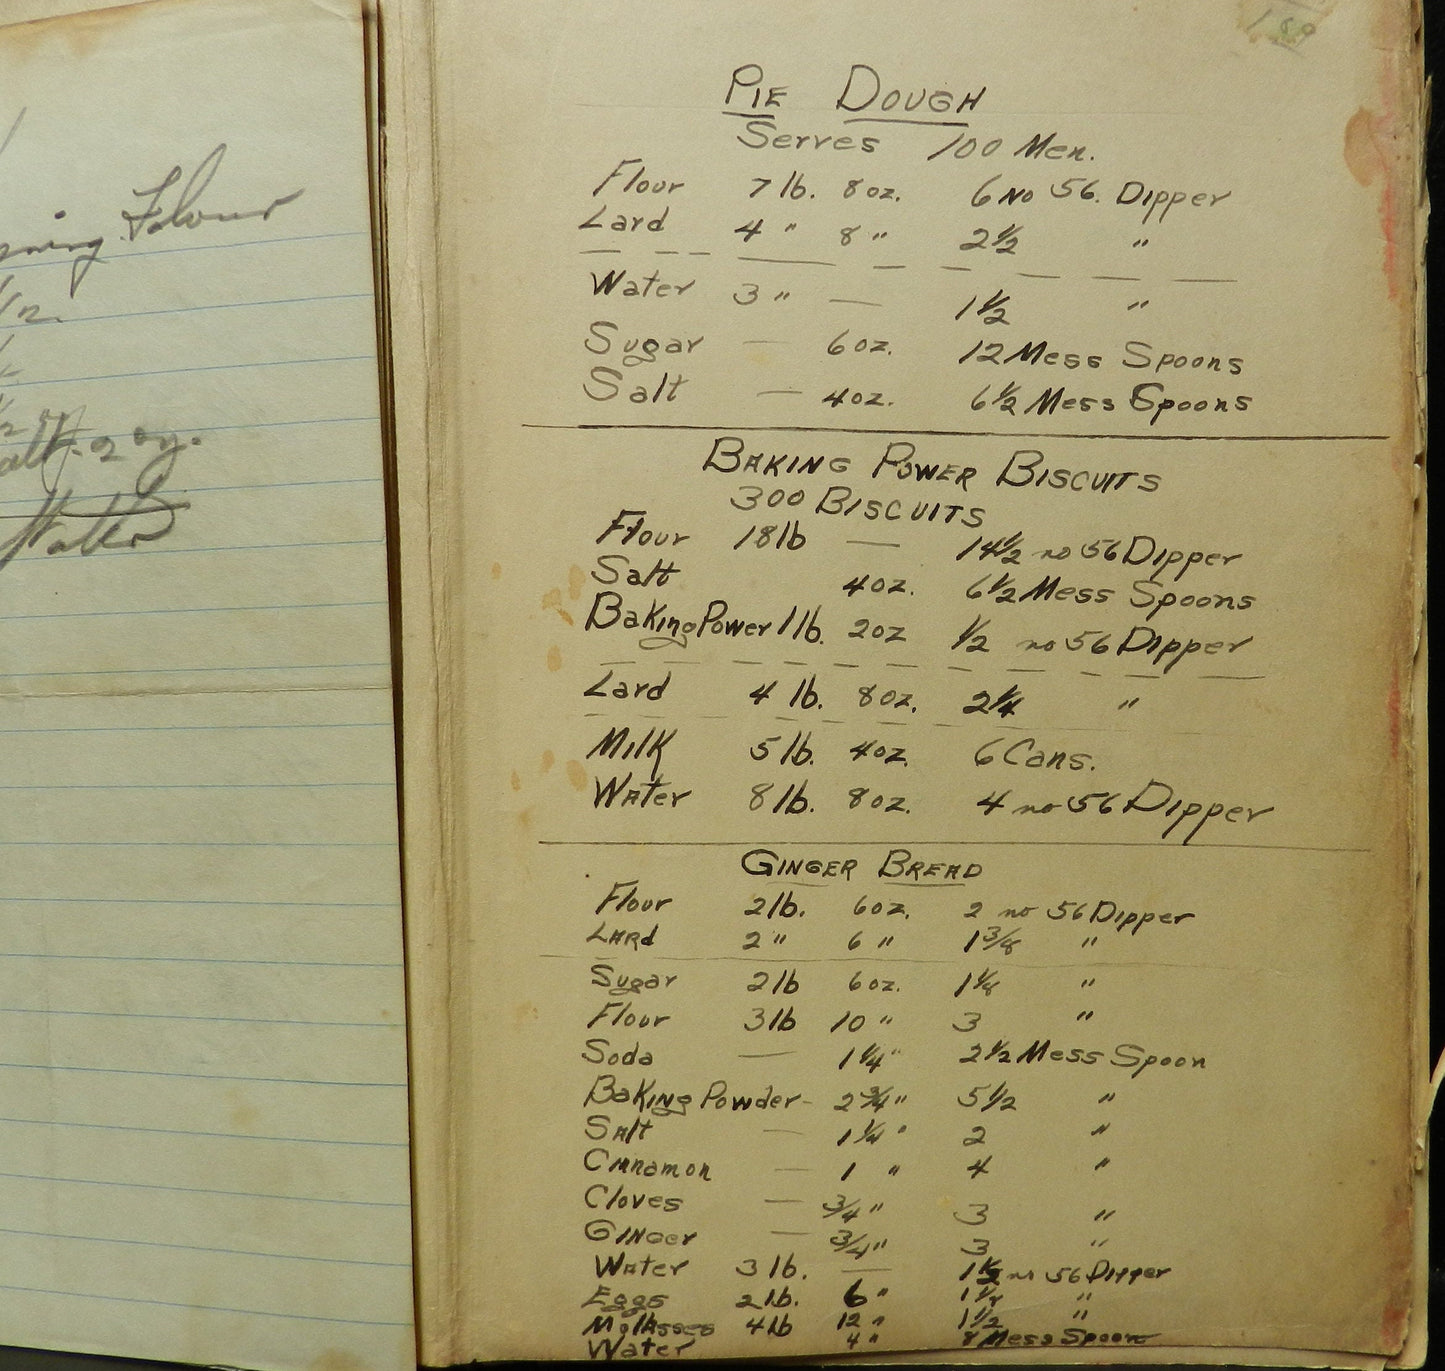 Flour
2 oz.
Water
189
PIE DOUGH
Serves 100 Men.
Flour 7 lb. 8 oz. 6 No 56. Dipper
Lard 4 " 8 " 2 1/2 "
Water 3 " — 1 1/2 "
Sugar — 6 oz. 12 Mess Spoons
Salt — 4 oz. 6 1/2 Mess Spoons
BAKING POWER BISCUITS
300 BISCUITS
Flour 18 lb — 14 1/2 no 56 Dipper
Salt 4 oz. 6 1/2 Mess Spoons
Baking Power 1 lb. 2 oz 1/2 no 56 Dipper
Lard 4 lb. 8 oz. 2 1/4 "
Milk 5 lb. 4 oz. 6 Cans.
Water 8 lb. 8 oz. 4 no 56 Dipper
GINGER BREAD
Flour 2 lb. 6 oz. 2 no 56 Dipper
Lard 2 " 6 " 1 3/8 "
Sugar 2 lb 6 oz. 1 1/8 "
Flour 3 lb 10 " 3 "
Soda — 1 1/4 " 2 1/2 Mess Spoon
Baking Powder - 2 3/4 " 5 1/2 "
Salt — 1 1/4 " 2 "
Cinnamon — 1 " 4 "
Cloves — 3/4 " 3 "
Ginger — 3/4 " 3 "
Water 3 lb. — 1 1/2 no 56 Dipper
Eggs 2 lb. 6 " "
Molasses 4 lb 12 " 1 1/2 "
Water 4 " 8 Mess Spoons